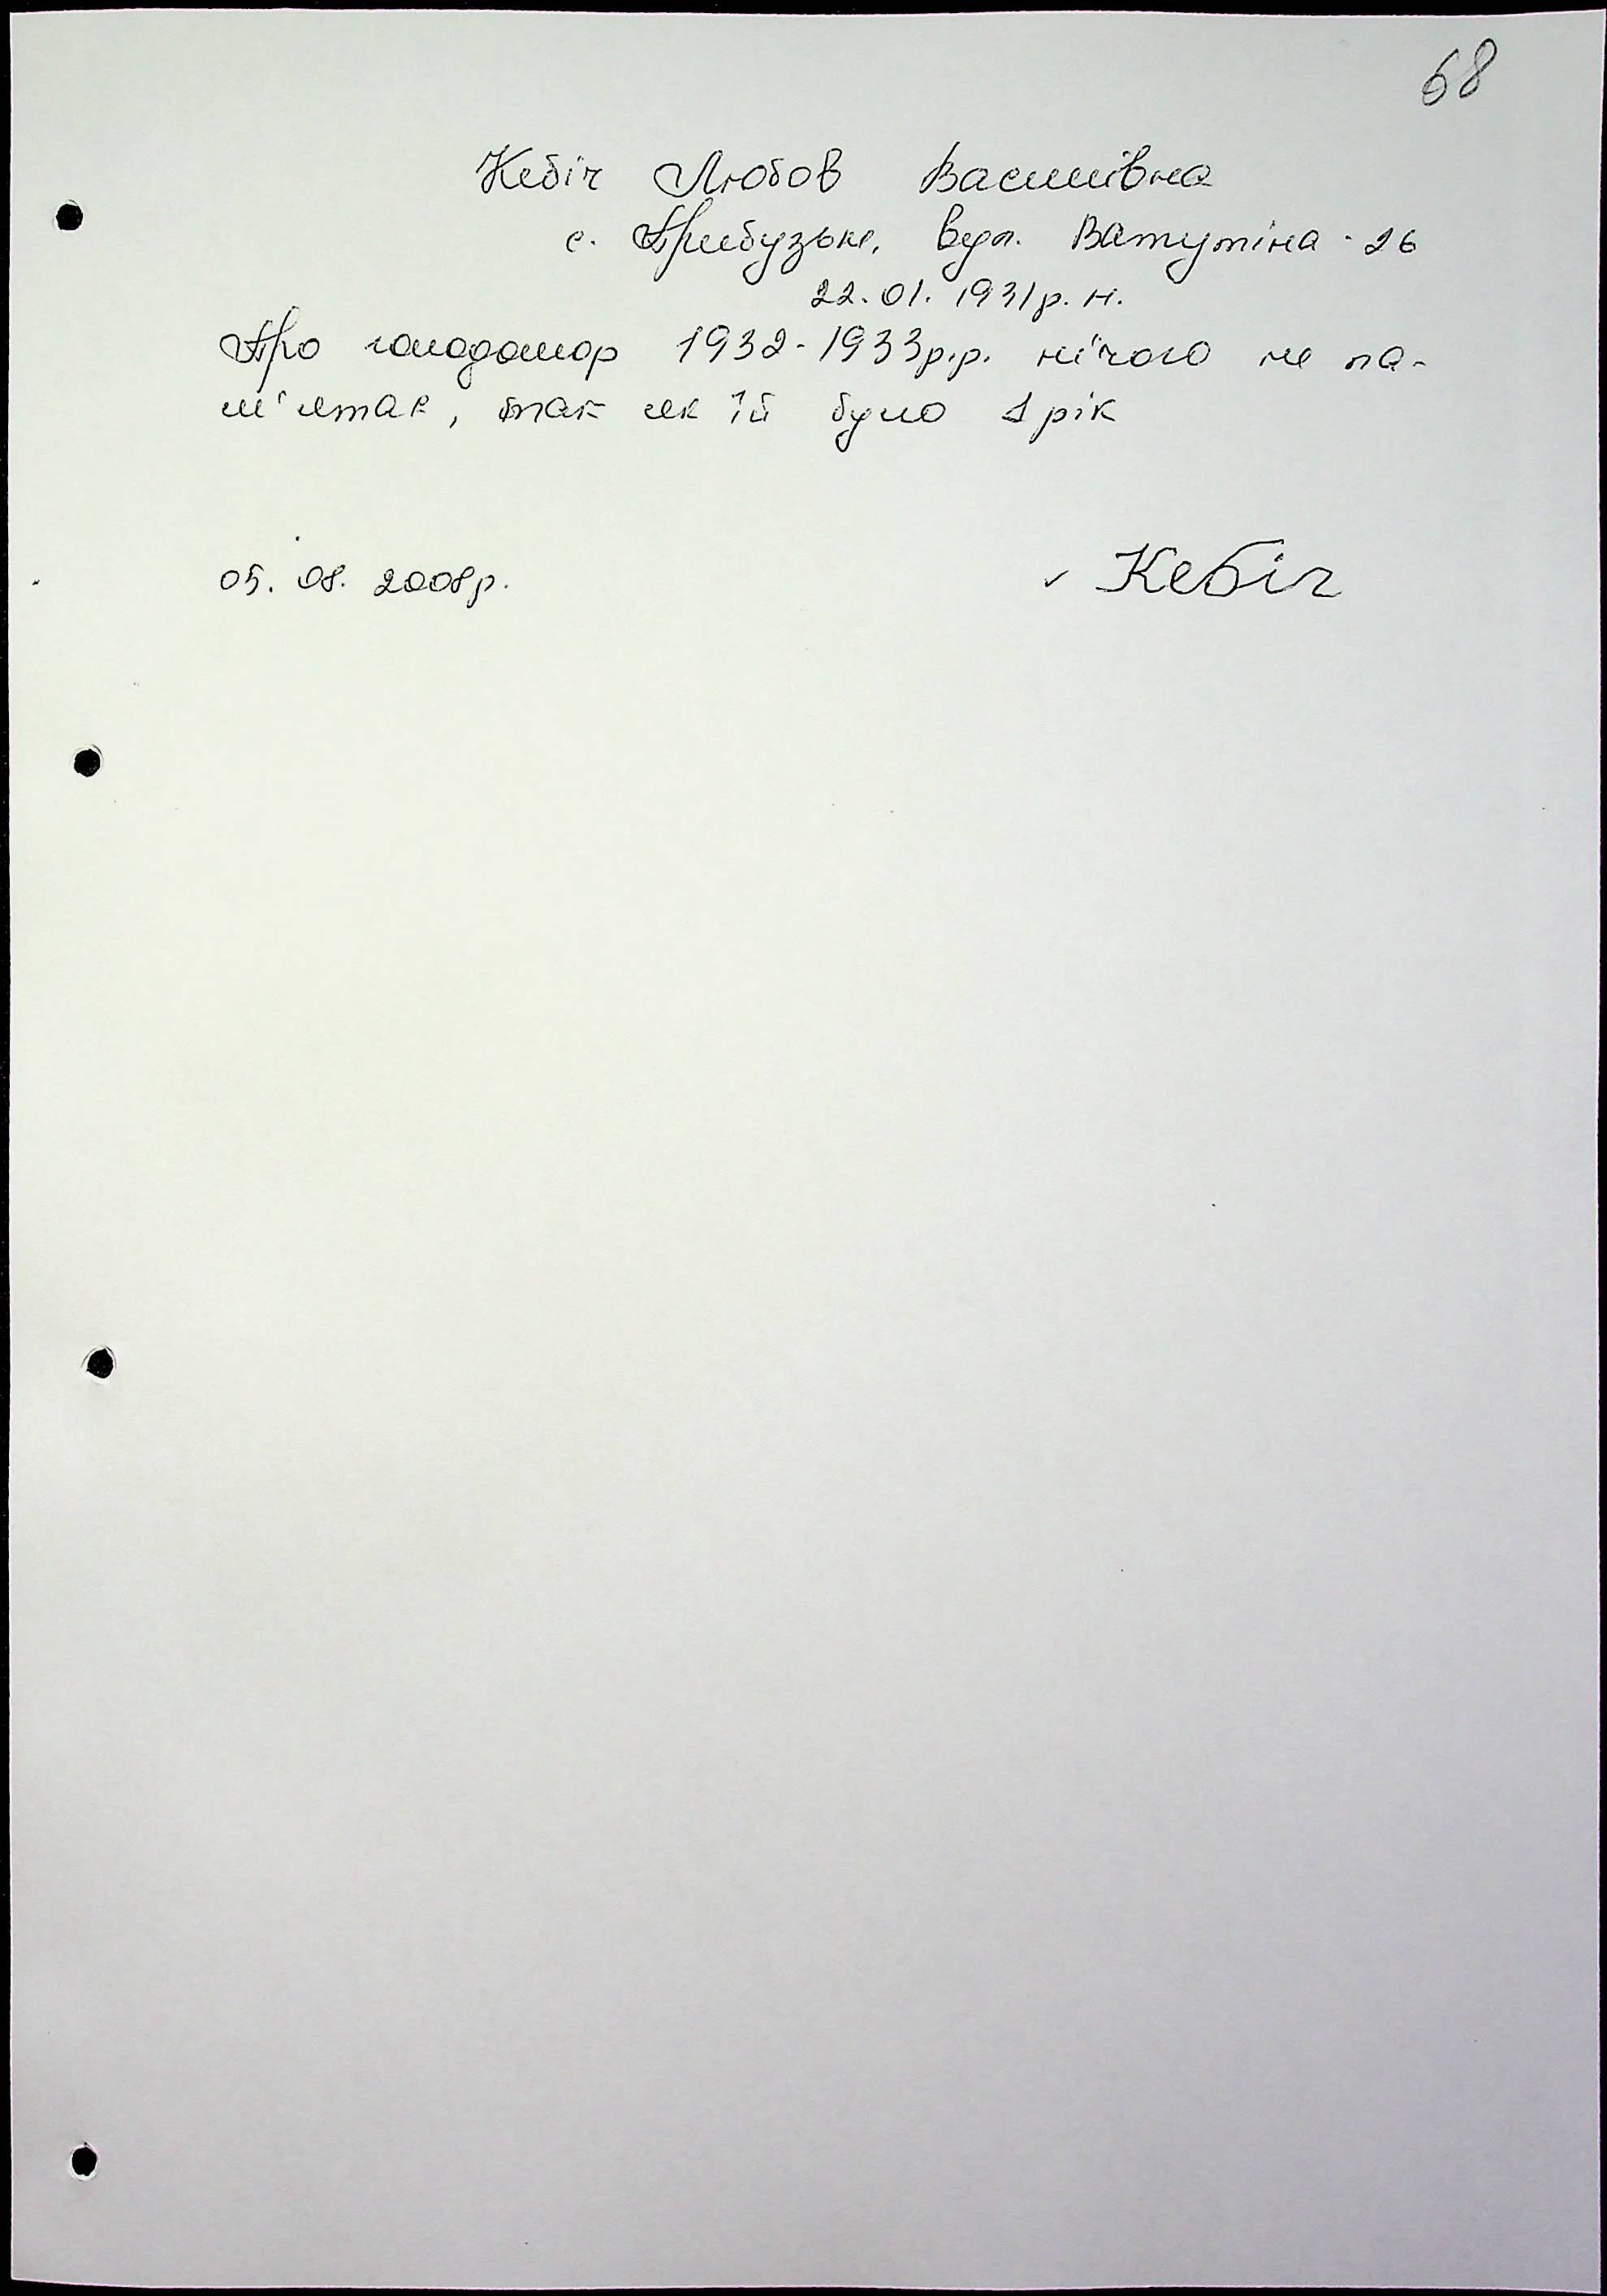 68
Кебіч Любов Василівна
с. Прибузьке, вул. Ватутіна - 26
22.01.1931 р.н.
Про голодомор 1932-1933 р.р. нічого не па-
м'ятає, так як їй було 1 рік
05.08.2008 р.
Кебіч